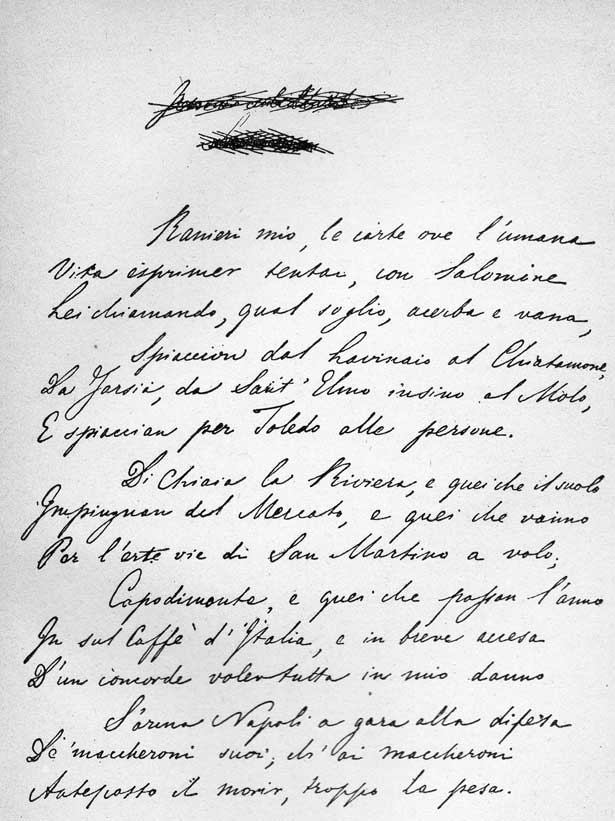 Ranieri mio, le carte ove l'umana
Vita esprimer tentai, con Salomone
Lei chiamando, qual soglio, acerba e vana,
Spiaccion dal Lavinaio al Chiatamone,
Da Tarsia, da Sant' Elmo insino al Molo,
E spiaccian per Toledo alle persone.
Di Chiaia la Riviera, e quei che il suolo
Impinguan del Mercato, e quei che vanno
Per l'erte vie di San Martino a volo;
Capodimonte, e quei che passan l'anno
In sul Caffè d'Italia, e in breve accesa
D'un concorde voler tutta in mio danno
S'arma Napoli a gara alla difesa
De' maccheroni suoi; ch' ai maccheroni
Anteposto il morir, troppo la pesa.